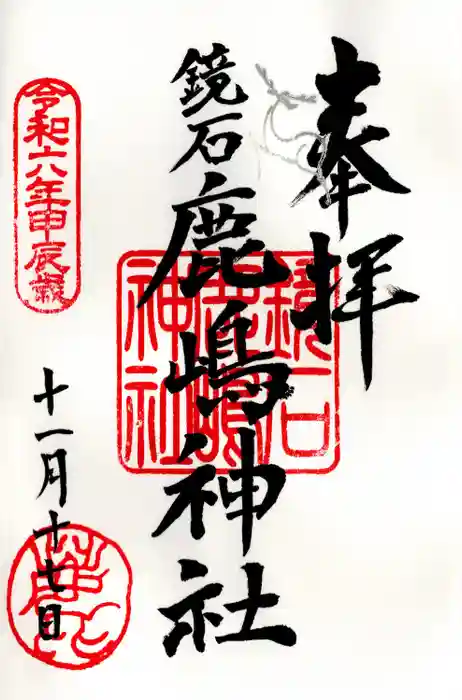 奉拝
鏡石鹿嶋神社
鏡石
鹿嶋
神社
令和六年甲辰歳
十一月十七日